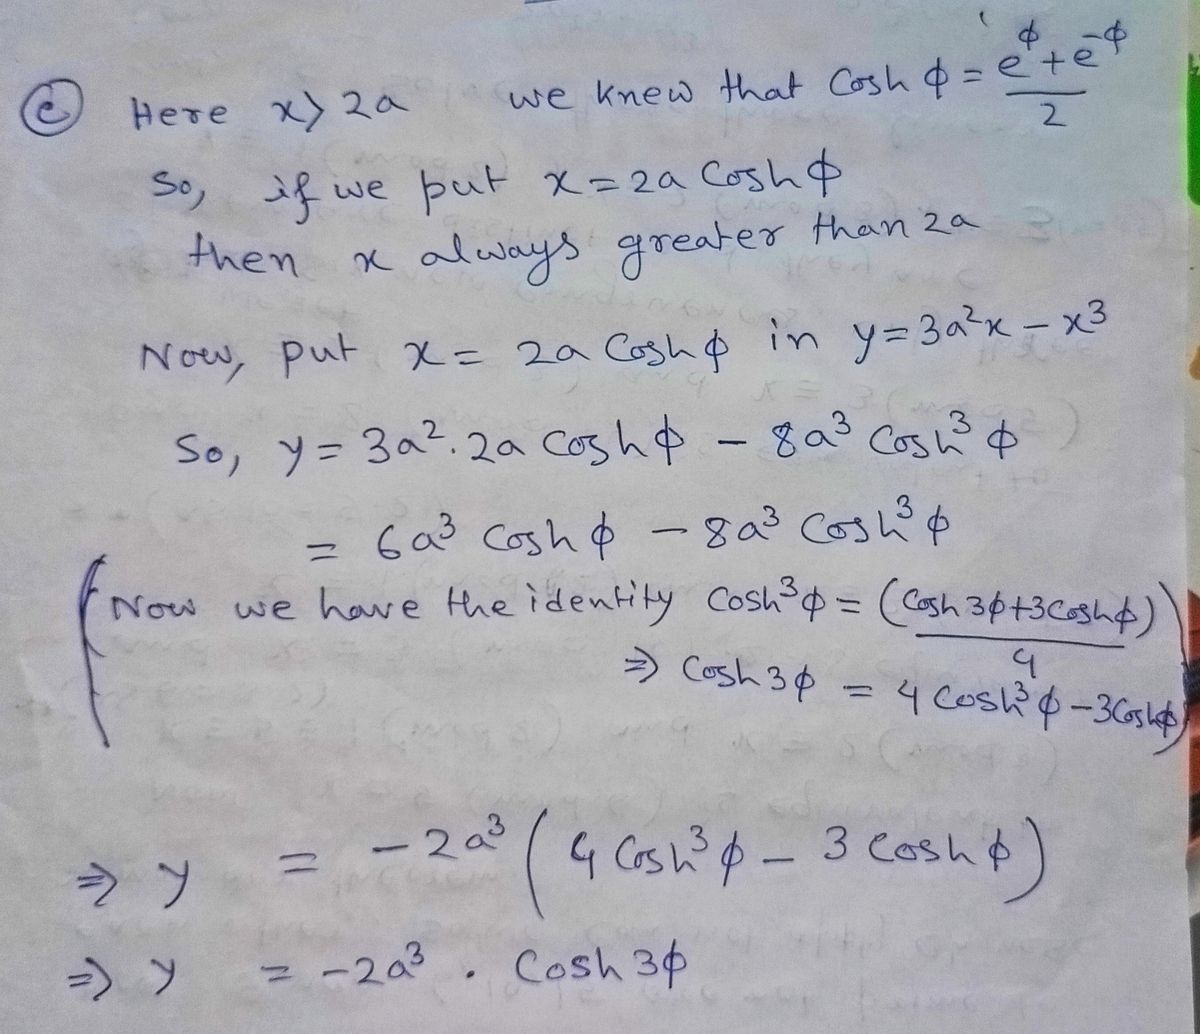 ⓒ Here x > 2a we knew that Cosh ϕ = (e^ϕ + e^-ϕ)/2
So, if we put x = 2a Cosh ϕ
then x always greater than 2a
Now, put x = 2a Cosh ϕ in y = 3a²x - x³
So, y = 3a².2a Cosh ϕ - 8a³ Cosh³ ϕ
= 6a³ Cosh ϕ - 8a³ Cosh³ ϕ
(Now we have the identity Cosh³ϕ = (Cosh 3ϕ + 3 Cosh ϕ)/4
⇒ Cosh 3ϕ = 4 Cosh³ ϕ - 3 Cosh ϕ)
⇒ y = -2a³ (4 Cosh³ ϕ - 3 Cosh ϕ)
⇒ y = -2a³ . Cosh 3ϕ